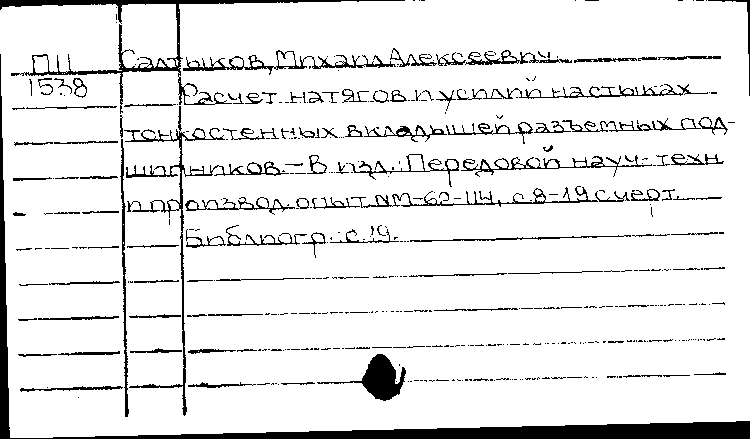 ПШ Салтыков, Михаил Алексеевич.
1538 Расчет натягов и усилий на стыках
тонкостенных вкладышей разъемных под-
шипников. – В изд.: Передовой науч.-техн.
и производ. опыт №М-62-114, с. 8-19 с черт.
Библиогр.: с. 19.